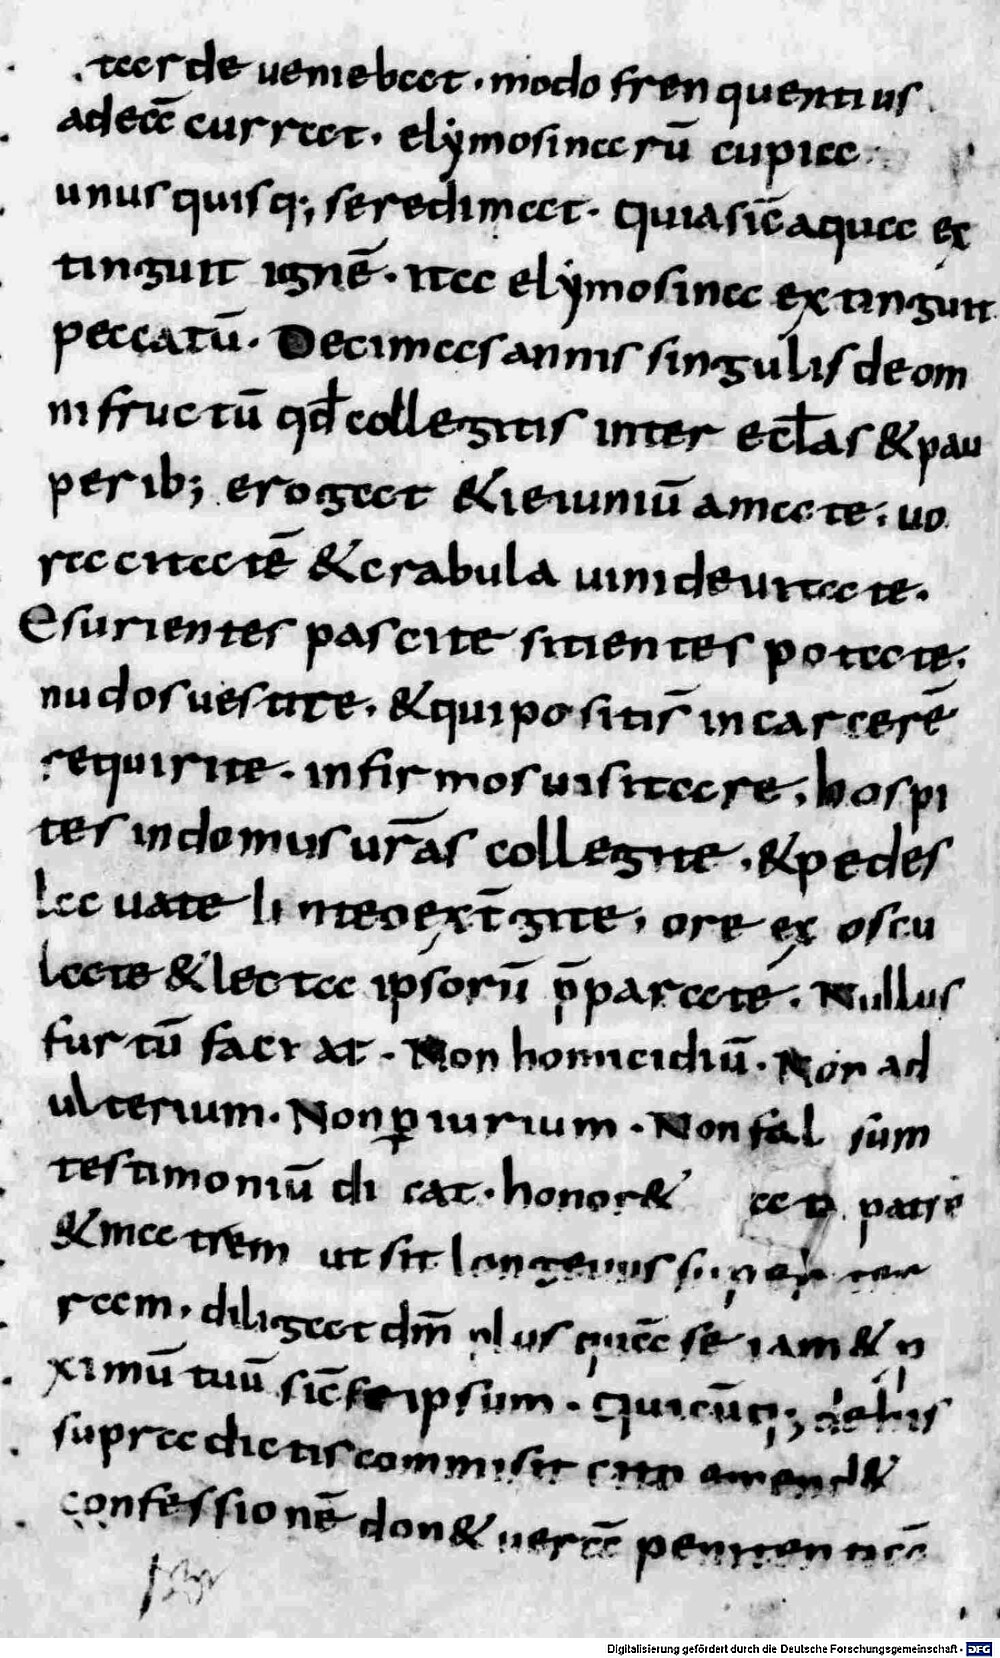 tar de ueniebat · modo fren quentius
adeā currat · elẏmosinarū cupia
unusquisq; se redimeat · quia sic̄ aqua ex
tinguit ignē · ita elẏmosina extinguit
peccatū · Decimas annis singulis de om
ni fructū qđ collegitis inter ecl̄as & pau
perib; erogat & ieiuniū amate · uo
racitatē & crabula uini deuitate ·
Esurientes pascite sitientes potate ·
nudos uestite · & qui positis̄ in carcerē
requirite · infirmos uisitare · hospi
tes in domus ur̄as collegite · & pedes
lauate linteo ext̄gite · ore ex oscu
late & lecta ipsorū p̄parate · Nullus
furtū faciat · Non homicidiū · Non ad
ulterium · Non ꝑiurium · Non falsum
testimoniū dicat · honor& patrē
& matrem ut sit longeuus super ter
ram · diligat dm̄ plus quā se iam & p
ximū tuū sic̄ se ipsum · Quicūq; de his
supra dictis commisit cito amend&
confessionē don& uerā penitentiā